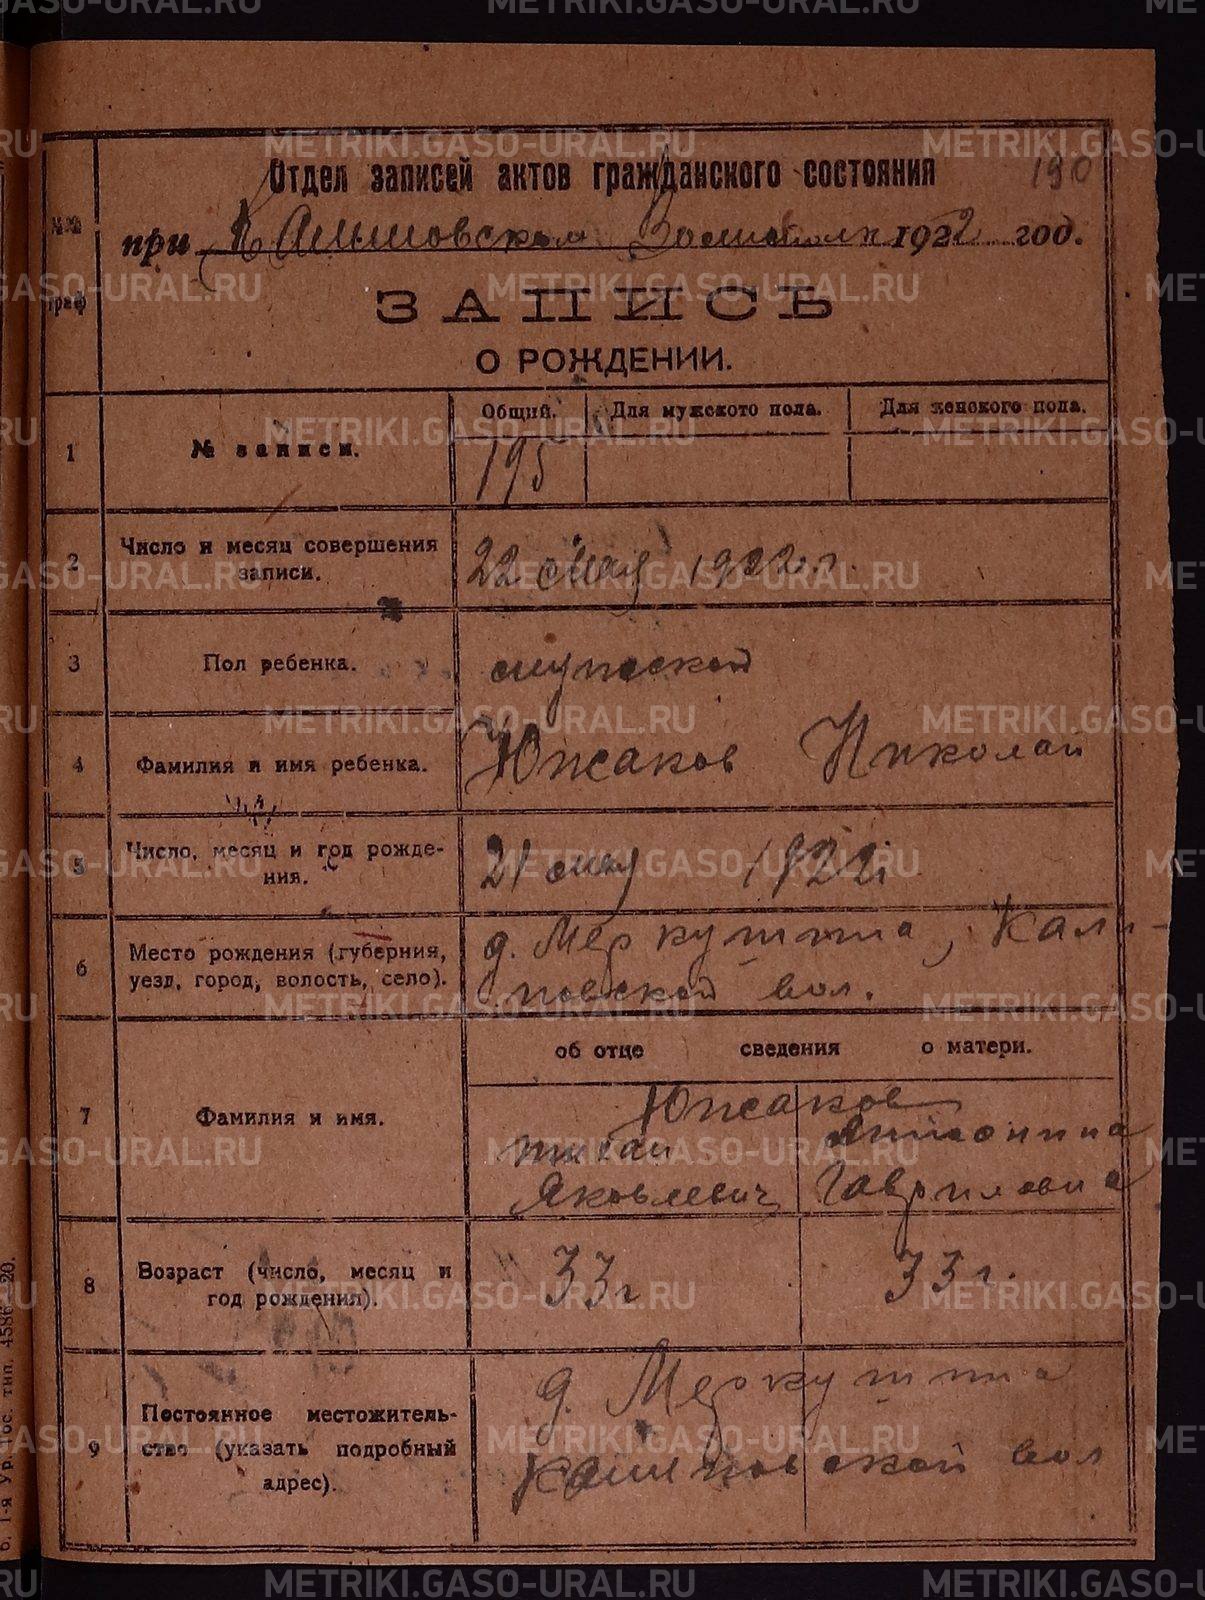 METRIKI.GASO-URAL.RU
Отдел записей актов гражданского состояния 190
при Камышовском Волисполк 1922 год.
№№ граф
ЗАПИСЬ
О РОЖДЕНИИ.
Общий. Для мужского пола. Для женского пола.
1 № записи. 195
2 Число и месяц совершения записи. 22 мая 1922 г.
3 Пол ребенка. мужской
4 Фамилия и имя ребенка. Южаков Николай
5 Число, месяц и год рождения. 21 мая 1922 г
6 Место рождения (губерния, уезд, город, волость, село). д. Меркушина, Калиновской вол.
об отце сведения о матери.
7 Фамилия и имя. Южаков
Антонина
Яковлевич Гавриловна
8 Возраст (число, месяц и год рождения). 33 г 33 г.
9 Постоянное местожительство (указать подробный адрес). д. Меркушина
Калиновской вол
1-я Ур. гос. тип. 4586—20.